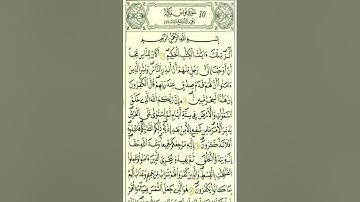 10 سورة يونس مكية
بسم الله الرحمن الرحيم
الر تلك ءايت الكتب الحكيم ١ أكان للناس عجبا
أن أوحينا إلى رجل منهم أن أنذر الناس وبشر الذين
ءامنوا أن لهم قدم صدق عند ربهم قال الكفرون
إن هذا لسحر مبين ٢ إن ربكم الله الذي خلق
السموت والأرض في ستة أيام ثم استوى على العرش
يدبر الأمر ما من شفيع إلا من بعد إذنه ذلكم الله ربكم
فاعبدوه أفلا تذكرون ٣ إليه مرجعكم جميعا وعد الله حقا
إنه يبدؤا الخلق ثم يعيده ليجزي الذين ءامنوا وعملوا
الصلحت بالقسط والذين كفروا لهم شراب من حميم وعذاب
أليم بما كانوا يكفرون ٤ هو الذي جعل الشمس ضياء